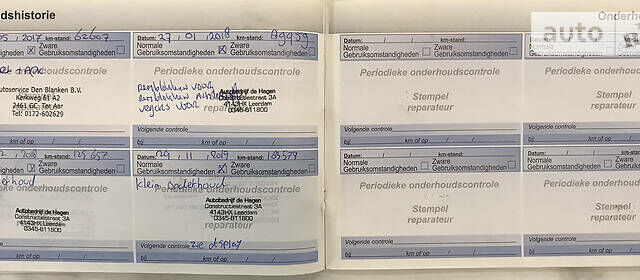 dshistorie
Onderho
auto
2017 km-stand: 62607
Zware
omstandigheden Gebruiksomstandigheden
Datum: 27/01/2018 km-stand:
Normale Zware
Gebruiksomstandigheden Gebruiksomstandigheden
onderhoudscontrole
utoservice Den Blanken B.V.
Kerkweg 61 A2
2461 GC Ter Aar
Tel: 0172-602629
Periodieke onderhoudscontrole
remblokken voor
Autobedrijf de Hagen
Constructiestraat 3A
4143HX Leerdam
0345-611800
reparateur
Volgende controle
bij km of op
2018 km-stand: 125657
Zware
omstandigheden Gebruiksomstandigheden
onderhoudscontrole
Autobedrijf de Hagen
Constructiestraat 3A
4143HX Leerdam
0345-611800
km of op
Datum: 29/11/2019 km-stand: 169579
Normale Zware
Gebruiksomstandigheden Gebruiksomstandigheden
Periodieke onderhoudscontrole
Klein onderhoud
Autobedrijf de Hagen
Constructiestraat 3A
4143HX Leerdam
0345-611800
Volgende controle zie display
bij km of op
Datum: / / km-stand:
Normale Zware
Gebruiksomstandigheden Gebruiksomstandigheden
Periodieke onderhoudscontrole
Stempel
reparateur
Volgende controle
bij km of op
Datum: / / km-stand:
Normale
Gebruiksomstandigheden
Periodieke onderhoudscontrole
Stempel
reparateur
Volgende controle
bij km of op
Datum: / / km-stand:
Normale Zware
Gebruiksomstandigheden Gebruiksomstandigheden
Periodieke onderhoudscontrole
Stempel
reparateur
Volgende controle
bij km of op
Datum: / / km-stand:
Normale
Gebruiksomstandigheden
Periodieke onderhoudscontrole
Stempel
reparateur
Volgende controle
bij km of op